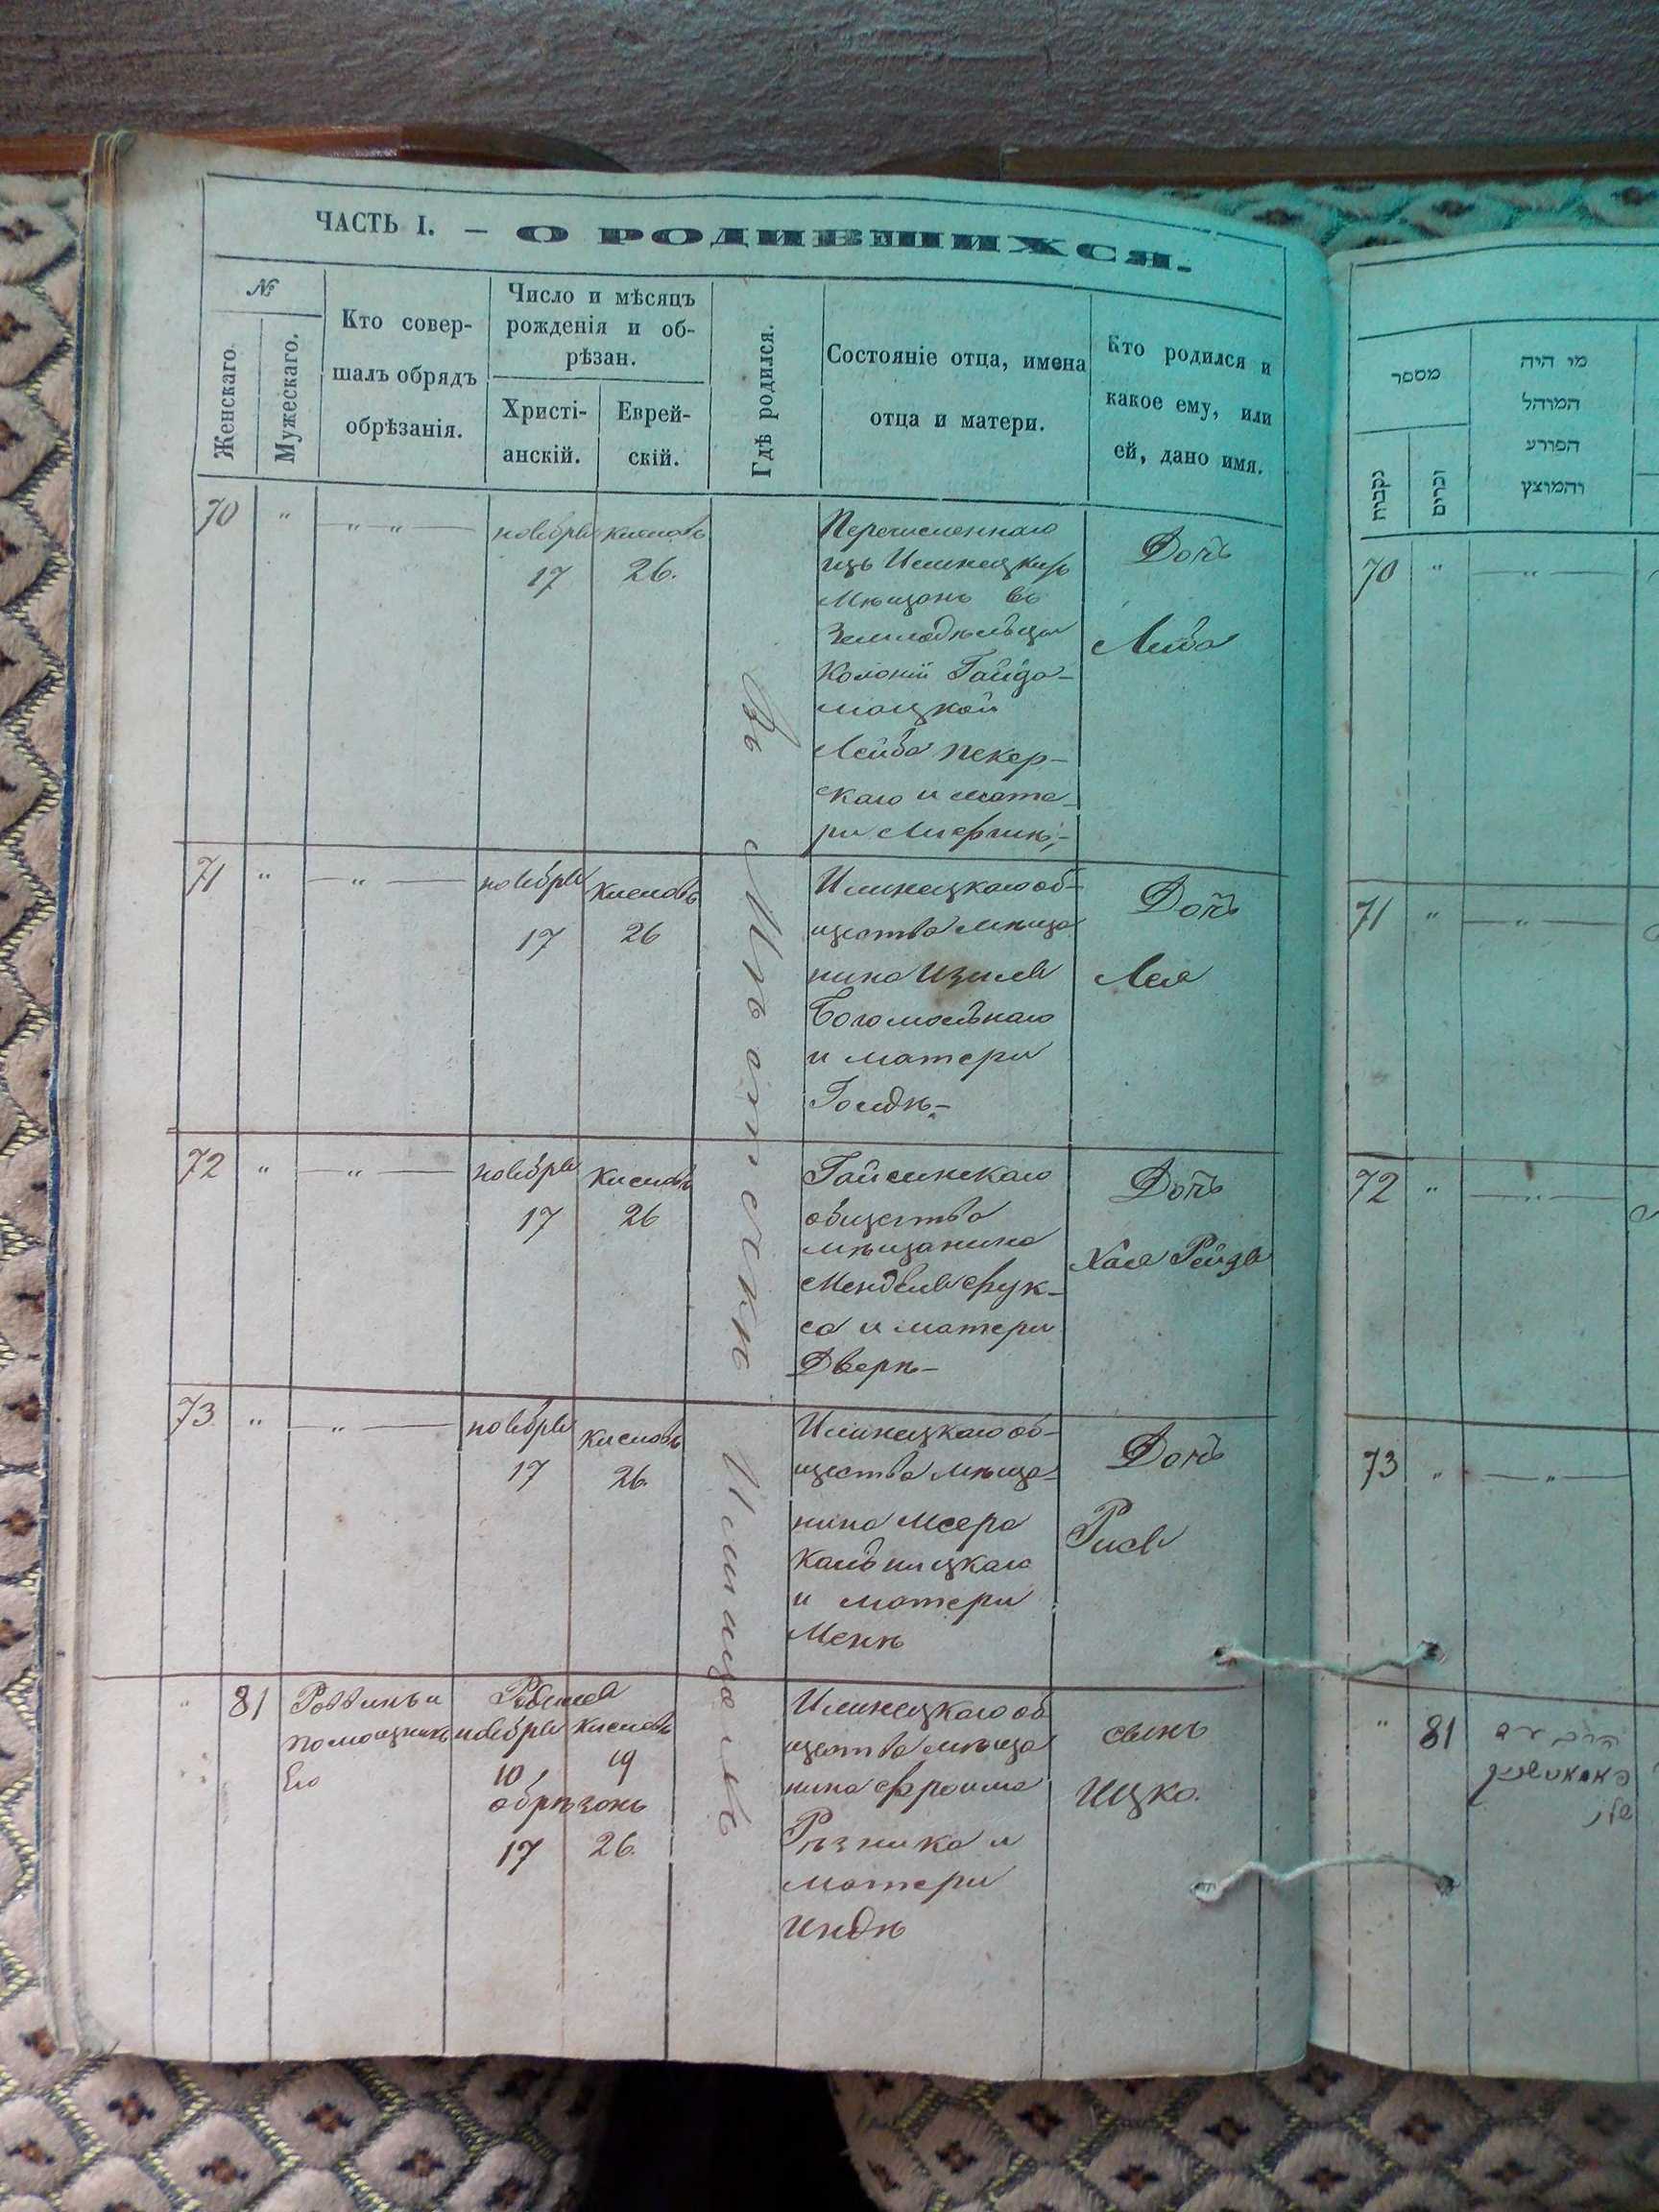 ЧАСТЬ I. — О РОДИВШИХСЯ.
№
Женскаго.
Мужескаго.
Кто совер-
шалъ обрядъ
обрѣзанія.
Число и мѣсяцъ
рожденія и об-
рѣзан.
Христі-
анскій.
Еврей-
скій.
Гдѣ родился.
Состояніе отца, имена
отца и матери.
Кто родился и
какое ему, или
ей, дано имя.
Въ Мѣстечкѣ Илинцахъ
70 " — " " —
ноября
17
Кислевъ
26.
Перечисленнаго
изъ Илинецкихъ
Мѣщанъ въ
Земледѣльцы
Колоніи Гайда-
мацкой
Лейба Пекер-
скаго и мате-
ри
Дочь
Либа
71 " — " —
ноября
17
Кислевъ
26
Илинецкаго об-
щества мѣща
нина Изиля
Богомольнаго
и матери
Голдѣ —
Дочь
Лея
72 " — " —
ноября
17
Кислевъ
26
Гайсинскаго
общества
мѣщанина
Менделя Фук-
са и матери
Дверѣ —
Дочь
Хая Рейзя
73 " — " —
ноября
17
Кислевъ
26.
Илинецкаго об-
щества мѣща-
нина Меера
Кальницкаго
и матери
Менѣ
Дочь
Рися
" 81
Раввинъ и
помощникъ
Его
Родился
ноября Кислевъ
10 19
обрѣзанъ
17 26.
Илинецкаго об
щества мѣща
нина Фроима
Рѣзника и
матери
Индѣ
сынъ
Ицко.
מספר
נקבות
זכרים
מי היה
המוהל
הפורע
והמוצץ
70 " — " —
71 " — " —
72 " — " —
73 " — " —
" 81